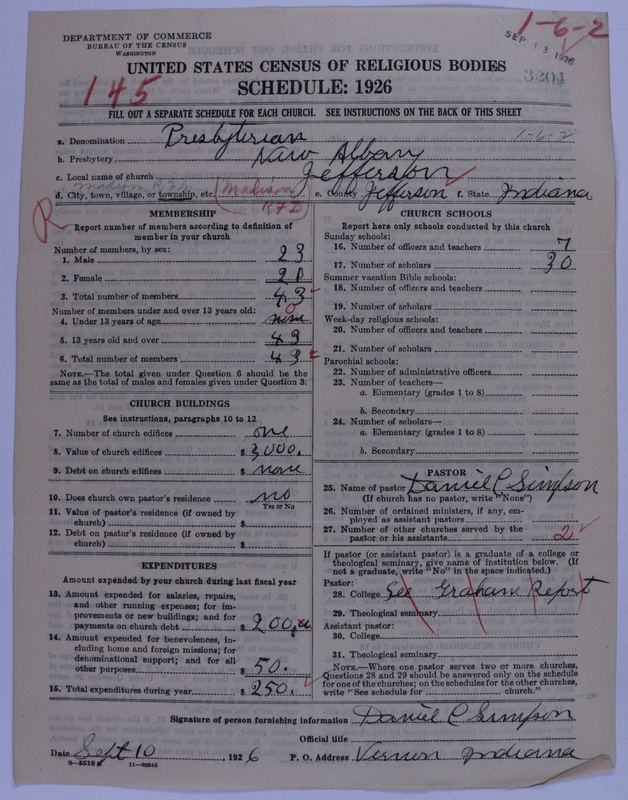 DEPARTMENT OF COMMERCE
BUREAU OF THE CENSUS
WASHINGTON
1-6-2
SEP 13 1926
3204
UNITED STATES CENSUS OF RELIGIOUS BODIES
145
SCHEDULE: 1926
FILL OUT A SEPARATE SCHEDULE FOR EACH CHURCH. SEE INSTRUCTIONS ON THE BACK OF THIS SHEET
a. Denomination Presbyterian 1-6-2
b. Presbytery New Albany
c. Local name of church Jefferson
Madison RFD
d. City, town, village, or township, etc. (Madison RFD) e. County Jefferson f. State Indiana
R
MEMBERSHIP
Report number of members according to definition of member in your church
Number of members, by sex:
1. Male 23
2. Female 20
3. Total number of members 43
Number of members under and over 13 years old:
4. Under 13 years of age none 0
5. 13 years old and over 43
6. Total number of members 43
NOTE.—The total given under Question 6 should be the same as the total of males and females given under Question 3.
CHURCH BUILDINGS
See instructions, paragraphs 10 to 12
7. Number of church edifices one
8. Value of church edifices $ 3,000.
9. Debt on church edifices $ none
10. Does church own pastor's residence no
Yes or No
11. Value of pastor's residence (if owned by church) $
12. Debt on pastor's residence (if owned by church) $
EXPENDITURES
Amount expended by your church during last fiscal year
13. Amount expended for salaries, repairs, and other running expenses; for improvements or new buildings; and for payments on church debt $ 200.00
14. Amount expended for benevolences, including home and foreign missions; for denominational support; and for all other purposes $ 50.
15. Total expenditures during year $ 250.
CHURCH SCHOOLS
Report here only schools conducted by this church
Sunday schools:
16. Number of officers and teachers 7
17. Number of scholars 30
Summer vacation Bible schools:
18. Number of officers and teachers
19. Number of scholars
Week-day religious schools:
20. Number of officers and teachers
21. Number of scholars
Parochial schools:
22. Number of administrative officers
23. Number of teachers—
a. Elementary (grades 1 to 8)
b. Secondary
24. Number of scholars—
a. Elementary (grades 1 to 8)
b. Secondary
PASTOR
25. Name of pastor Daniel C Simpson
(If church has no pastor, write "None")
26. Number of ordained ministers, if any, employed as assistant pastors
27. Number of other churches served by the pastor or his assistants 2
If pastor (or assistant pastor) is a graduate of a college or theological seminary, give name of institution below. (If not a graduate, write "No" in the space indicated.)
Pastor:
28. College See Graham Report
29. Theological seminary
Assistant pastor:
30. College
31. Theological seminary
NOTE.—Where one pastor serves two or more churches, Questions 28 and 29 should be answered only on the schedule for one of the churches; on the schedules for the other churches, write "See schedule for church."
Signature of person furnishing information Daniel C Simpson
Official title
Date Sept 10, 1926 P. O. Address Vernon Indiana
8-5518 11-9684d